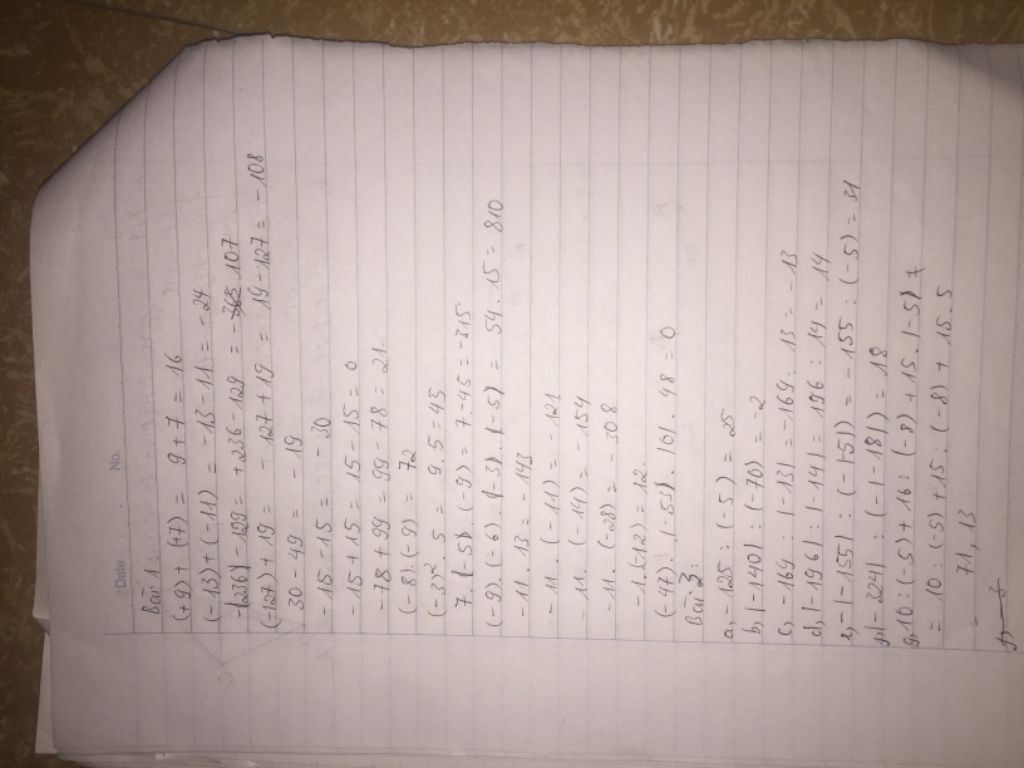 Date : No.
Bài 1.
(+9) + (+7) = 9 + 7 = 16
(-13) + (-11) = -13 - 11 = -24
-|236| - 129 = + 236 - 129 = - 107
(-127) + 19 = - 127 + 19 = 19 - 127 = - 108
30 - 49 = - 19
- 15 - 15 = - 30
- 15 + 15 = 15 - 15 = 0
- 78 + 99 = 99 - 78 = 21.
(-8) . (-9) = 72
(-3)² . 5 = 9. 5 = 45
7. |-5| . (-9) = 7. -45 = -315
(-9) . (-6) . |-3| . |-5| = 54. 15 = 810
- 11 . 13 = - 143
- 11 . (-11) = -121
- 11 . (-14) = - 154
- 11 . (-28) = - 308
- 1. (-12) = 12.
(-47) . |-53| . 101 . 98 = 0
Bài 3:
a, - 125 : (-5) = 25
b, |-140| : (-70) = -2
c, - 169 : |-13| = -169 : 13 = - 13
d, |-196| : |-14| = 196 : 14 = 14
e, -|-155| : (-|-5|) = - 155 : (-5) = 31.
f, |-324| : (-|-18|) = 18
g, 10 : (-5) + 16 : (-8) + 15 . |-5|
= 10 : (-5) + 15 : (-8) + 15 . 5
= 71, 13